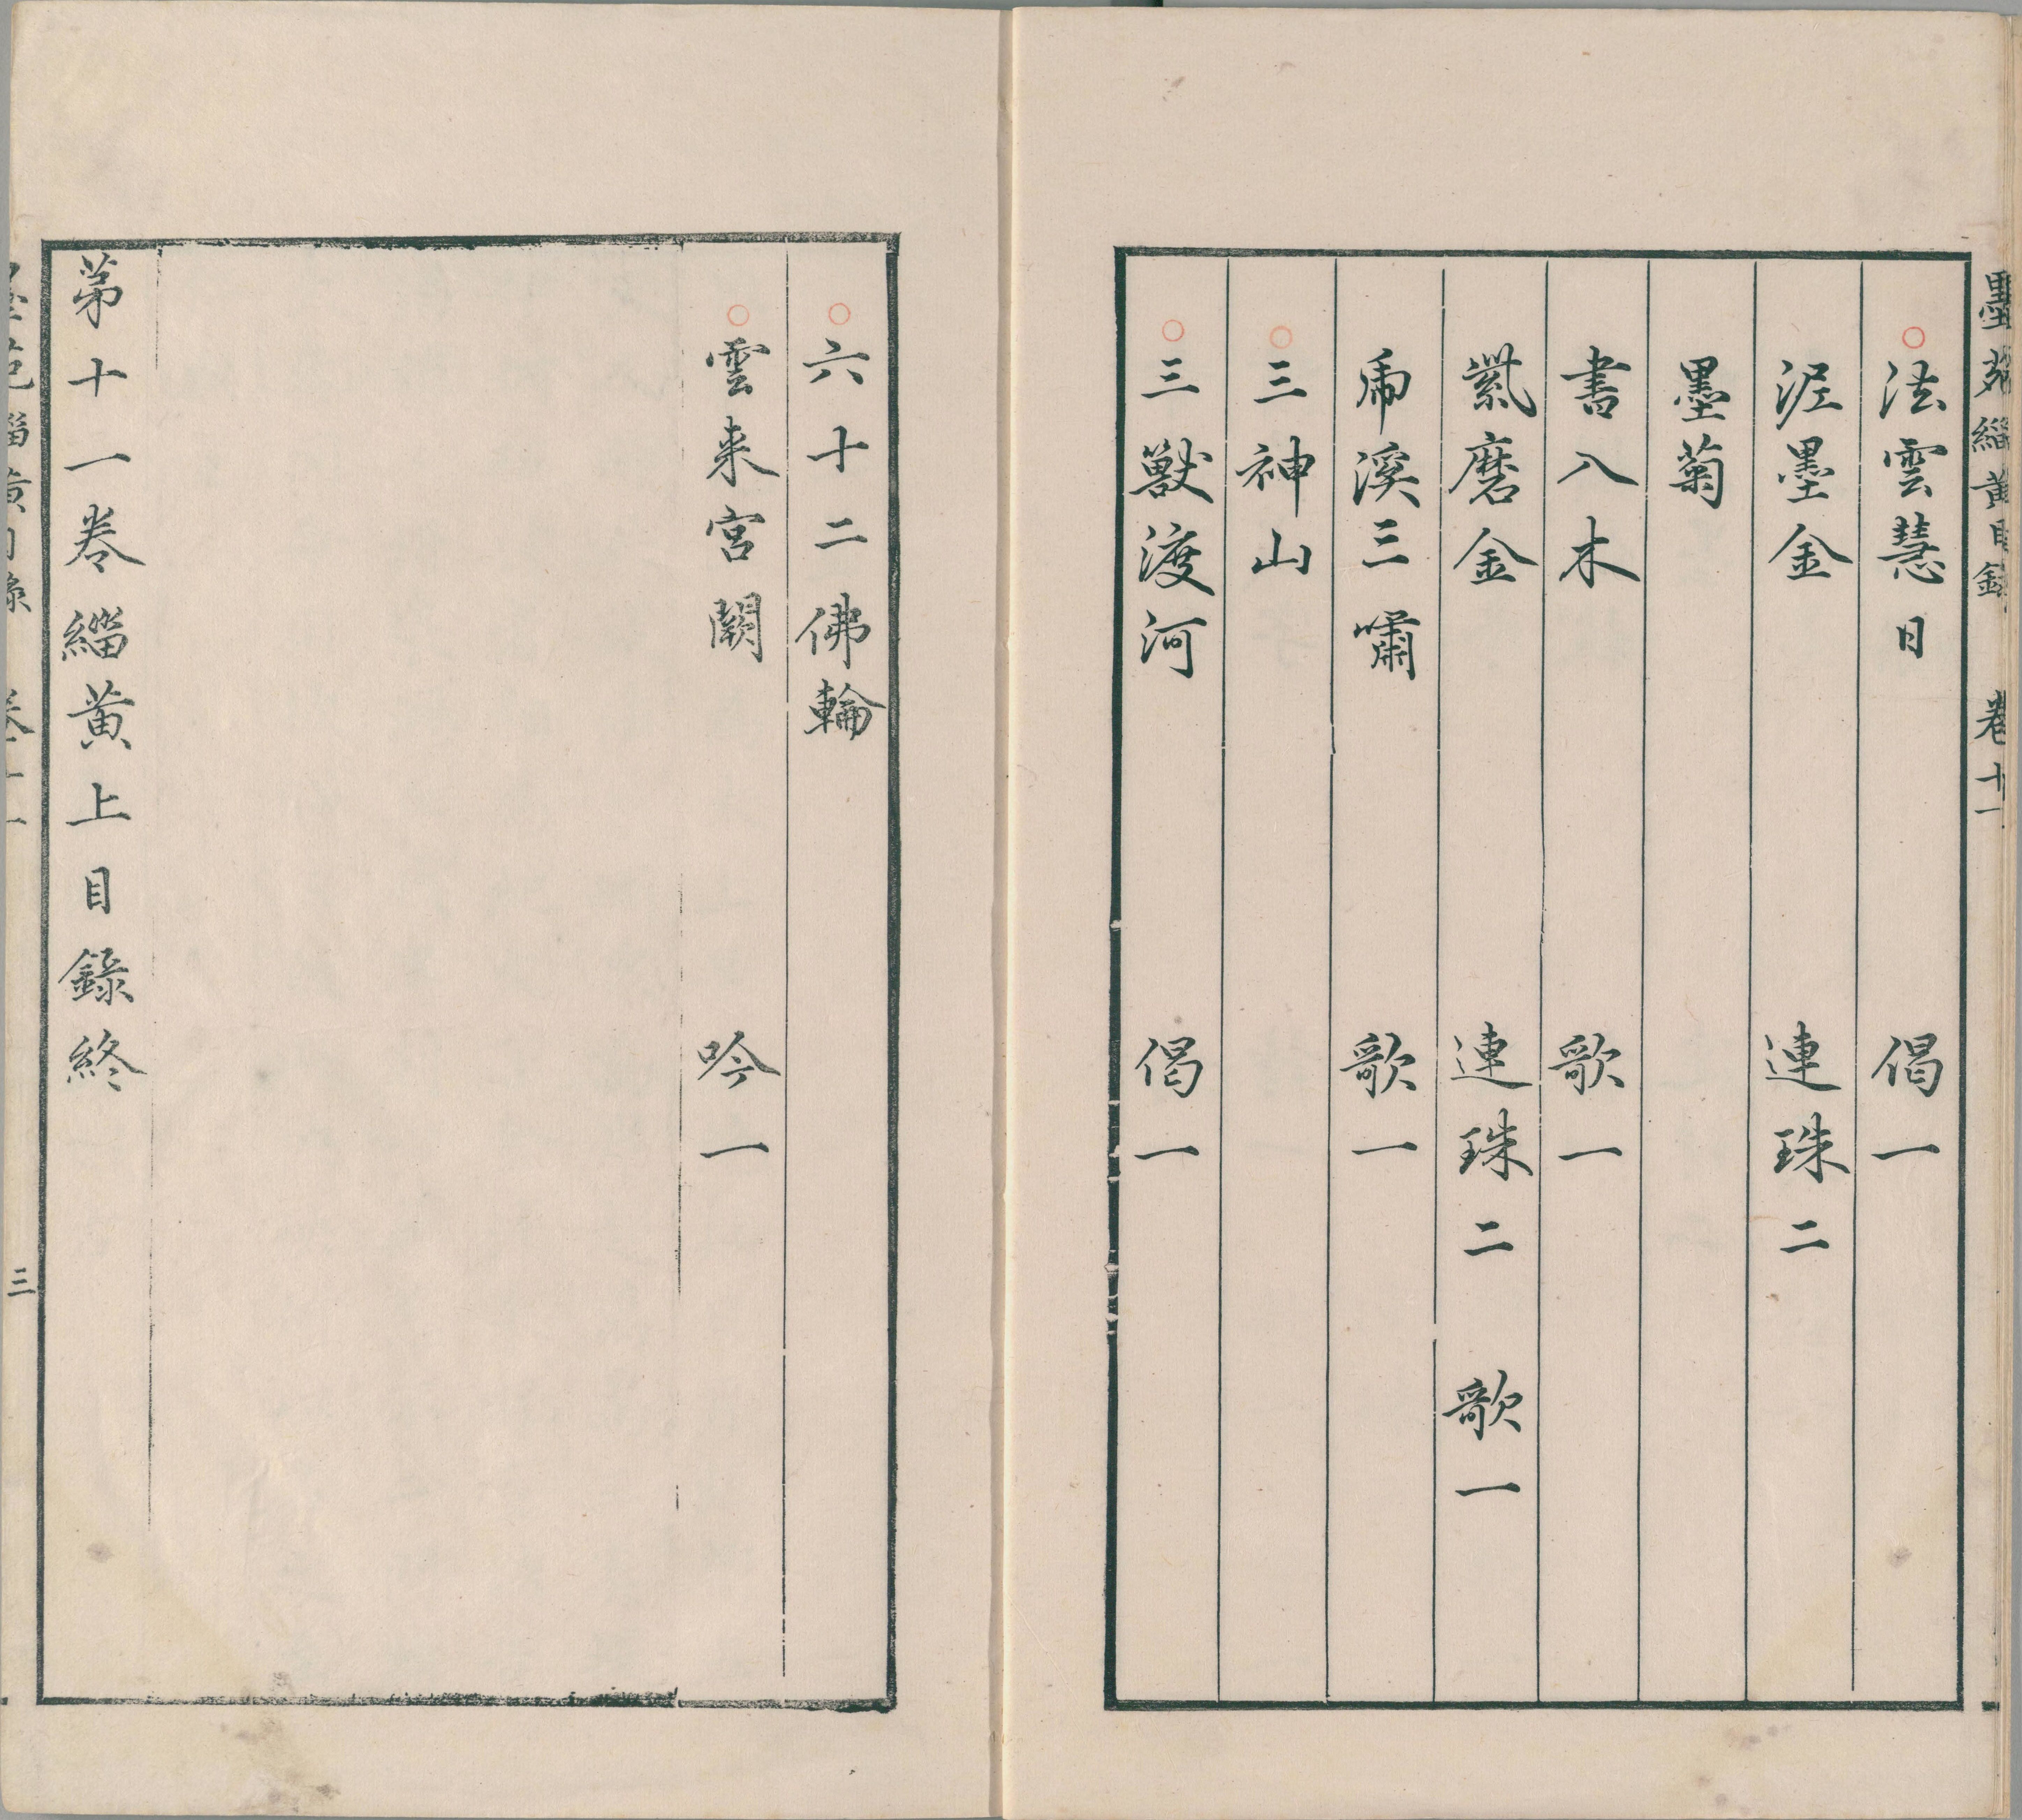 墨苑緇黃目錄 卷十一
○法雲慧日 偈一
泥墨金 連珠二
墨菊
書入木 歌一
紫磨金 連珠二 歌一
虎溪三嘯 歌一
○三神山
○三獸渡河 偈一
○六十二佛輪
○雲来宮闕 吟一
第十一卷緇黃上目錄終
三